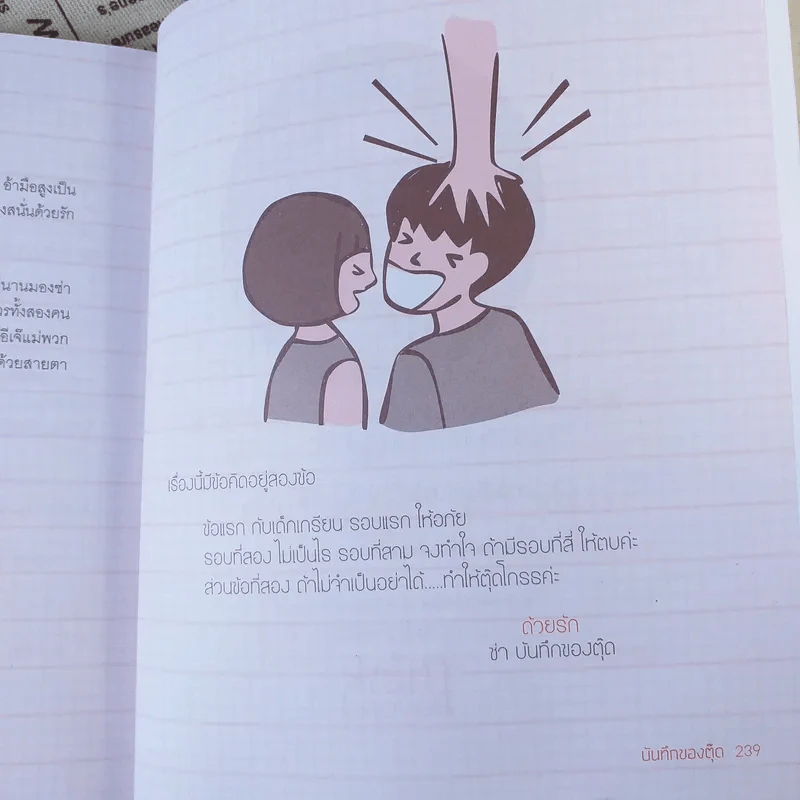 อ้ามือสูงเป็น
งสนั่นด้วยรัก
นานมองซ่า
วรทั้งสองคน
อีเจ๊แม่พวก
ด้วยสายตา
เรื่องนี้มีข้อคิดอยู่สองข้อ
ข้อแรก กับเด็กเกรียน รอบแรก ให้อภัย
รอบที่สอง ไม่เป็นไร รอบที่สาม จงทำใจ ถ้ามีรอบที่สี่ ให้ตบค่ะ
ส่วนข้อที่สอง ถ้าไม่จำเป็นอย่าได้.....ทำให้ตุ๊ดโกรธค่ะ
ด้วยรัก
ซ่า บันทึกของตุ๊ด
บันทึกของตุ๊ด 239